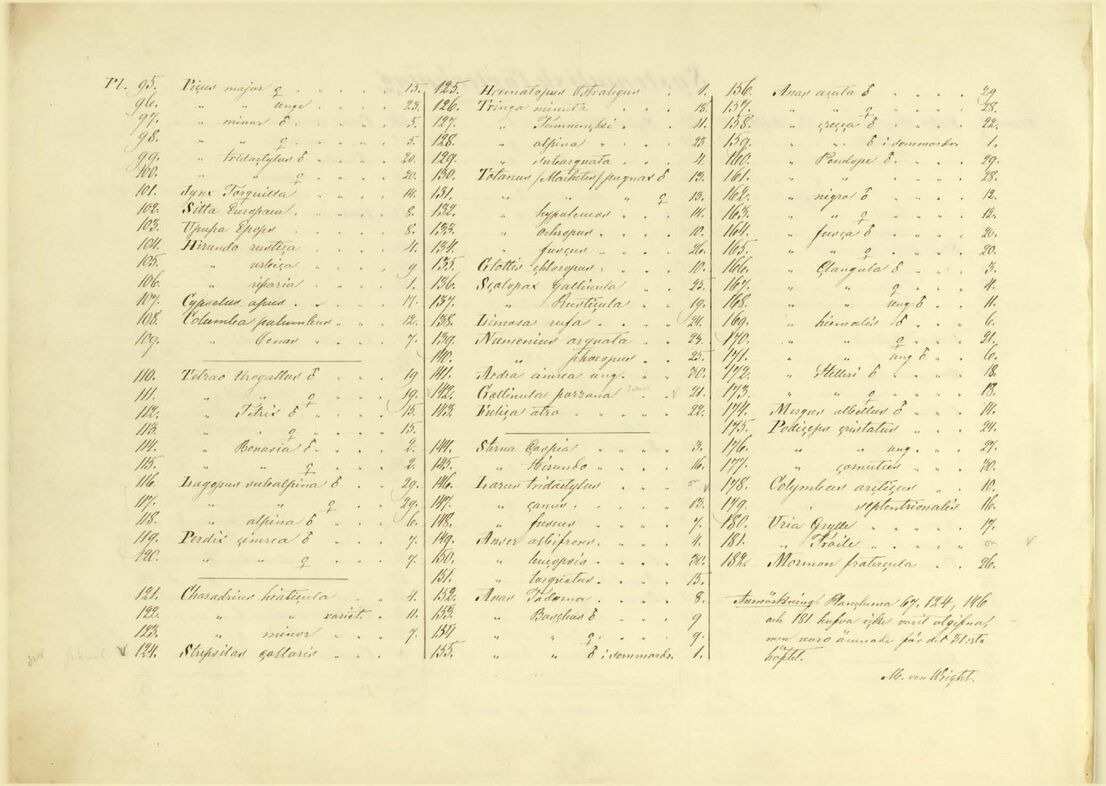 Pl. 95. Picus major ♀ . . . . . 13.
96. „ „ unge . . . . 23.
97. „ minor ♂ . . . . . 5.
98. „ „ ♀ . . . . . 5.
99. „ tridactylus ♂ . . . . 20.
100. „ „ ♀ . . . . 20.
101. Jynx Torquilla . . . . . 11.
102. Sitta Europaea . . . . . 8.
103. Upupa Epops . . . . . 8.
104. Hirundo rustiça . . . . . 4.
105. „ urbiça . . . . . 9
106. „ riparia . . . . . 1.
107. Cypselus apus . . . . . 17.
108. Columba palumbus . . . . 12.
109. „ Oenas . . . . . 7.
110. Tetrao Urogallus ♂ . . . 19
111. „ „ ♀ . . . 19.
112. „ Tetrix ♂ . . . . 15.
113. „ „ ♀ . . . . 15.
114. „ Bonasia ♂ . . . . 2.
115. „ „ ♀ . . . . 2.
116. Lagopus subalpina ♂ . . . 29.
117. „ „ ♀ . . . 29.
118. „ alpina ♂ . . . . 6.
119. Perdix çinerea ♂ . . . . 7.
120. „ „ ♀ . . . . 7.
121. Charadrius hiaticula . . . . 4.
122. „ „ variet. . . 11.
123. „ minor . . . . 7.
124. Strepsilas çollaris . . . .
125. Hæmatopus Ostralegus . . 1.
126. Tringa minuta . . . . 18.
127. „ Temminçkii . . . . 11.
128. „ alpina . . . . 23
129. „ subarquata . . . . 4.
130. Totanus (Machetes) pugnax ♂ 13.
131. „ „ „ ♀ 13.
132. „ hypoleucos . . . . 14.
133. „ ochropus . . . . 10.
134. „ fuscus . . . . 26.
135. Glottis chloropus . . . . 10.
136. Sçolopax Gallinula . . . 25.
137. „ Rustiçula . . . 19.
138. Limosa rufa . . . . 24.
139. Numenius arquata . . . 23.
140. „ phæopus . . . 25.
141. Ardea cinerea ung. . . . 30.
142. Gallinula porzana . . 21.
143. Fuliça atra . . . . . 22.
144. Sterna Çaspia . . . . 3.
145. „ Hirundo . . . . 16.
146. Larus tridactylus . . .
147. „ çanus . . . . 13.
148. „ fuscus . . . . 7.
149. Anser albifrons . . . . 4.
150. „ leucopsis . . . . 30.
151. „ torquatus . . . . 15.
152. Anas Tadorna . . . . 8.
153. „ Boschas ♂ . . . . 9
154 „ „ ♀ . . . . 9.
155. „ „ ♂ i sommardr. 1.
156. Anas açuta ♂ . . . . . 29
157. „ „ ♀ . . . . . 28.
158. „ çreçça ♂ . . . . . 22.
159. „ „ ♂ i sommardr. 1.
160. „ Penelope ♂ . . . . 29.
161. „ „ ♀ . . . . 28.
162. „ nigra ♂ . . . . 12.
163. „ „ ♀ . . . . 12.
164. „ fusça ♂ . . . . 20.
165. „ „ ♀ . . . . 20.
166. „ Çlangula ♂ . . . . 3.
167. „ „ ♀ . . . . 4.
168. „ „ ung ♂ . . . 11.
169. „ hiemalis ♂ . . . 6.
170. „ „ ♀ . . . 21.
171. „ „ ung ♂ . . . 6.
172. „ Stelleri ♂ . . . . 18.
173. „ „ ♀ . . . . 18.
174. Mergus albellus ♂ . . . . 14.
175. Podiçeps çristatus . . . . 24.
176. „ „ ung. . . . 27.
177. „ çornutus . . . . 30.
178. Colymbus arçticus . . . . 10.
179. „ septentrionalis 16.
180. Uria Grylle . . . . . 17.
181. „ Troile . . . . .
182. Mormon fraterçula . . . . 26.
Anmärkning. Plançherna 67, 124, 146
och 181 hafva içke varit utgifna,
men voro ämnade för det 31:sta
häftet.
M. von Wright.